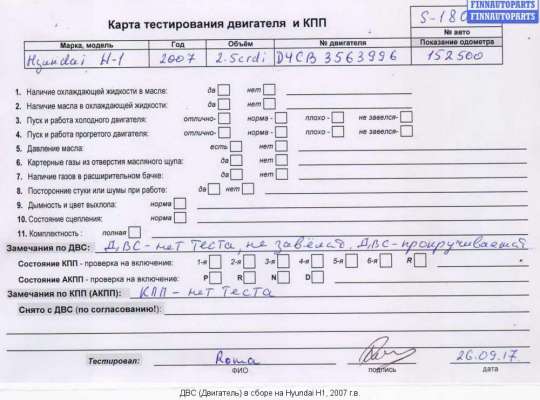 FINNAUTOPARTS
FINNAUTOPARTS
Карта тестирования двигателя и КПП
S-180
№ авто
Марка, модель Год Объём № двигателя Показание одометра
Hyundai H-1 2007 2.5crdi D4CB 3563996 152500
да нет
1. Наличие охлаждающей жидкости в масле:
2. Наличие масла в охлаждающей жидкости: да нет
3. Пуск и работа холодного двигателя: отлично- норма - плохо - не завелся-
4. Пуск и работа прогретого двигателя: отлично- норма - плохо - не завелся-
5. Давление масла: есть нет
6. Картерные газы из отверстия масляного щупа: да нет
7. Наличие газов в расширительном бачке: да нет
8. Посторонние стуки или шумы при работе: да нет
9. Дымность и цвет выхлопа: норма
10. Состояние сцепления: норма
11. Комплектность : полная
Замечания по ДВС: ДВС-нет теста, не завелся, ДВС-прокручивается
Состояние КПП - проверка на включение: 1-я 2-я 3-я 4-я 5-я 6-я R
Состояние АКПП - проверка на включение: P R N D
Замечания по КПП (АКПП): КПП-нет теста
Снято с ДВС (по согласованию!):
Тестировал: Roma 26.09.17
ФИО подпись дата
ДВС (Двигатель) в сборе на Hyundai H1, 2007 г.в.